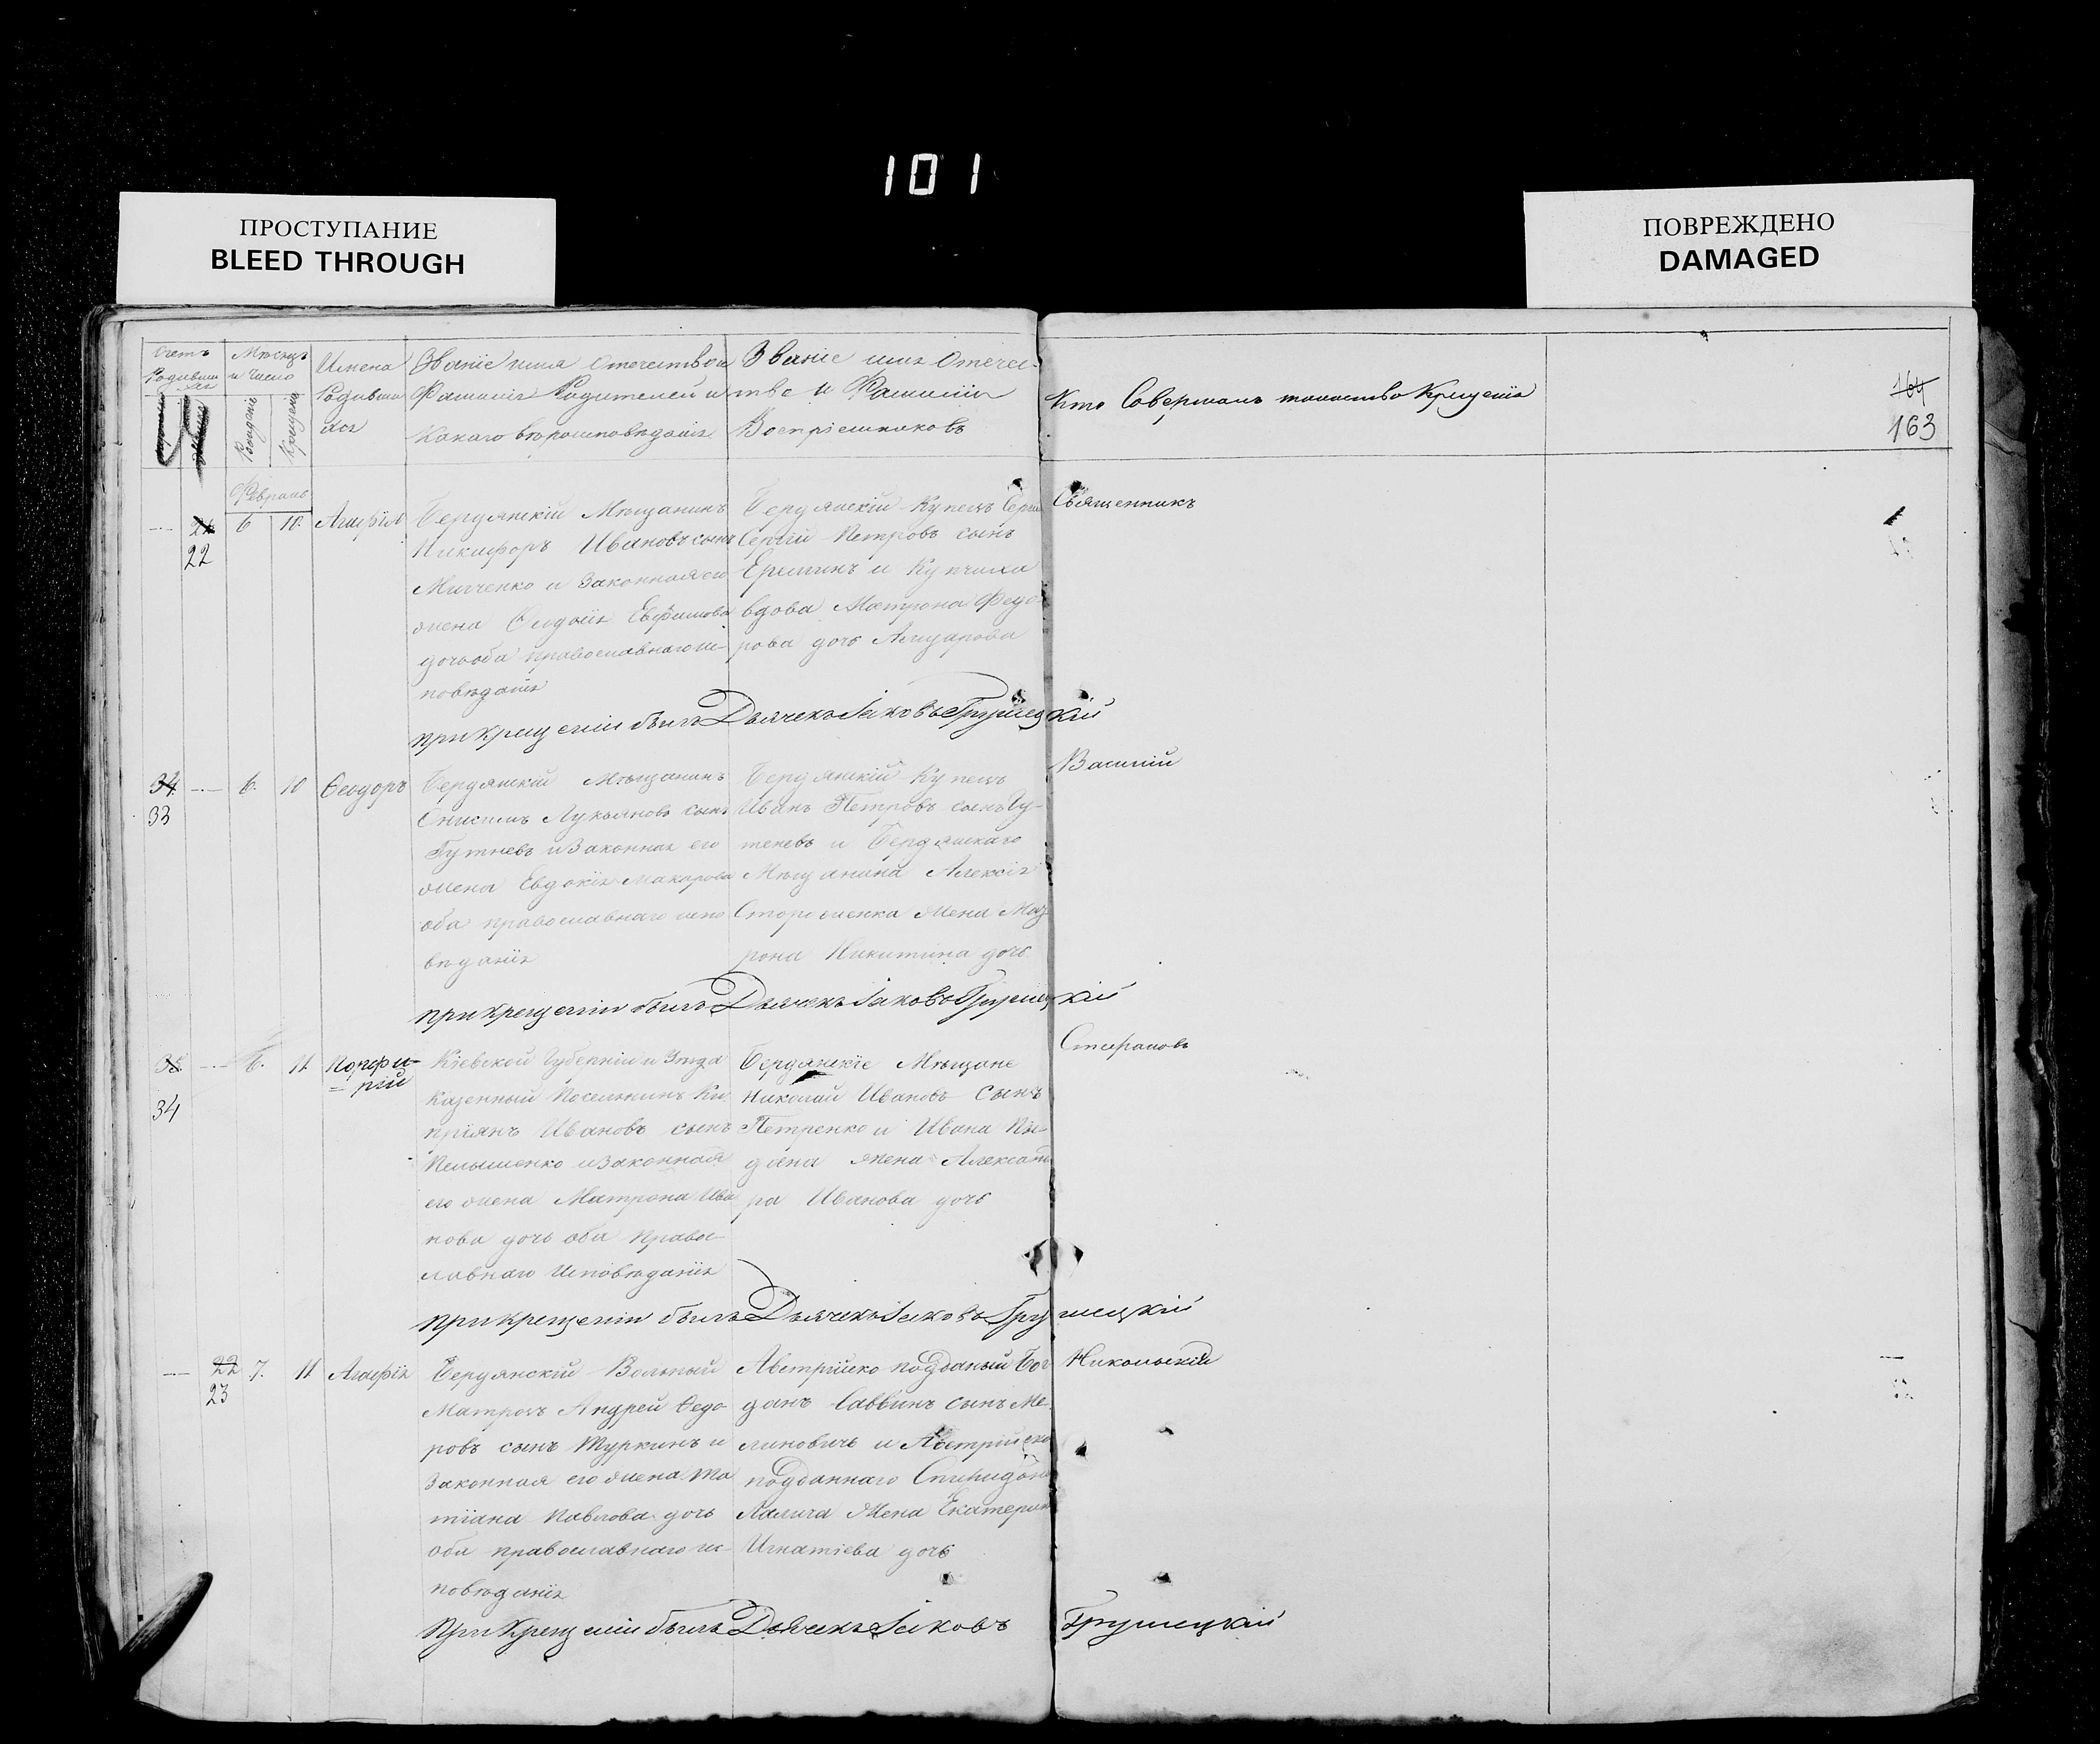 101
ПРОСТУПАНИЕ
BLEED THROUGH
ПОВРЕЖДЕНО
DAMAGED
Счетъ Родивши
Мѣсяцъ и Число
Рожденія
Крещенія
Имена
Родивши
Званіе имя Отечество и
Фамилія Родителей и
Какаго вѣроисповѣданія
Званіе имя Отечес-
тво и Фамилія
Воспріемниковъ
Кто Совершалъ таинство Крещенія
164
163
Февраль
21 6 10. Агафія
22
Бердянскій Мѣщанинъ
Никифоръ Ивановъ сынъ
и Законная его
жена Евфимова
дочь оба православнаго ис-
повѣданія
Бердянскій Купецъ
Сергій Петровъ сынъ
Ереминъ и Купчиха
вдова Матрона Федо
рова дочь
Священникъ
при крещеніи былъ Дьячекъ Іаковъ Грушецкій
34 6. 10 Ѳеодоръ
33
Бердянскій Мѣщанинъ
Онисимъ Лукьяновъ сынъ
и Законная его
жена Евдокія Макарова
оба православнаго испо
вѣданія
Бердянскій Купецъ
Иванъ Петровъ сынъ
и Бердянскаго
Мѣщанина Алексія
жена
рона Никитина дочь
Василій
при крещеніи былъ Дьячекъ Іаковъ Грушецкій
35 6. 11 Порфи-
рій
34
Кіевской Губерніи и Уѣзда
Казенный Поселянинъ Ки
пріянъ Ивановъ сынъ
и Законная
его жена Матрона Ива
нова дочь оба Право-
славнаго Исповѣданія
Бердянскіе Мѣщане
Николай Ивановъ Сынъ
Петренко и Ивана
жена Александ
ра Иванова дочь
Стефановъ
при крещеніи былъ Дьячекъ Іаковъ Грушецкій
22 7. 11 Агафія
23
Бердянскій Вольный
Матросъ Андрей Ѳедо-
ровъ сынъ Туркинъ и
Законная его жена Та
тіана Павлова дочь
оба православнаго ис-
повѣданія
Австрійско подданый Бог
данъ Саввинъ сынъ Ме-
линовичь и Австрійско
подданнаго Спиридона
Лалича Жена Екатерина
Игнатіева дочь
Никольскій
При Крещеніи былъ Дьячекъ Іаковъ Грушецкій